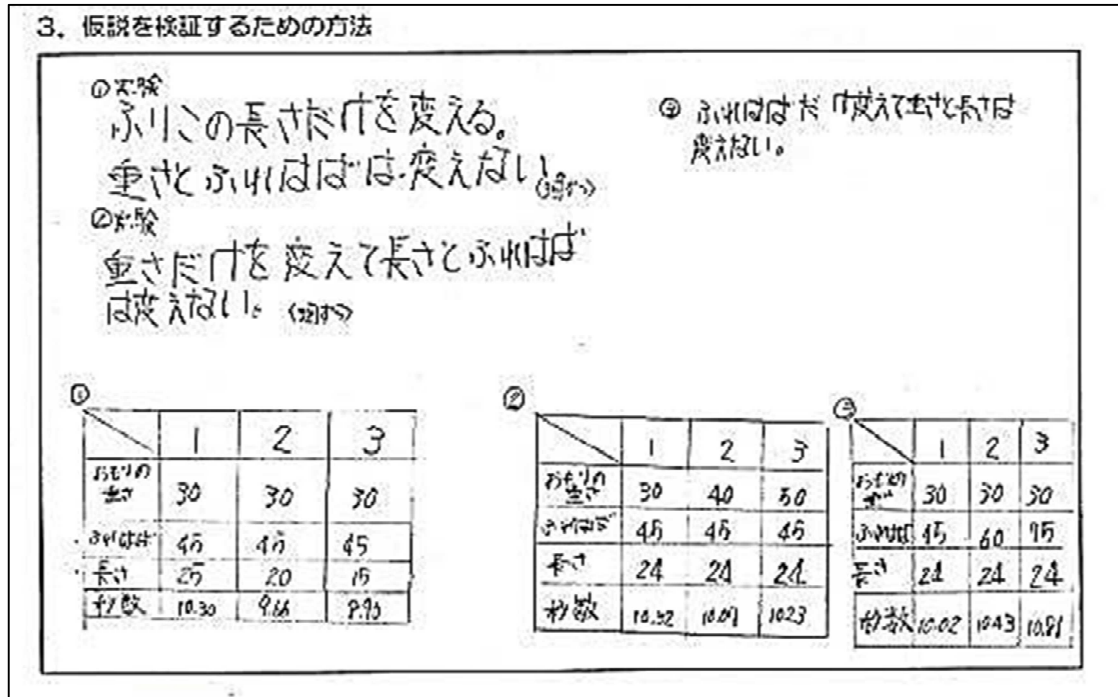 3. 仮説を検証するための方法
①実験
ふりこの長さだけを変える。
重さとふれはばは変えない。
②実験
重さだけを変えて長さとふれはば
は変えない。
ふれはばだけ変えて重さと長さは
変えない。
①
1 2 3
おもりの重さ 30 30 30
ふれはば 45 45 45
長さ 25 20 15
秒数 10.30
②
1 2 3
おもりの重さ 30 40 50
ふれはば 45 45 45
長さ 24 24 24
秒数 10.32 10.09 10.23
③
1 2 3
おもりの 30 30 30
ふれはば 45 60 75
長さ 24 24 24
秒数 10.02 10.43 10.81